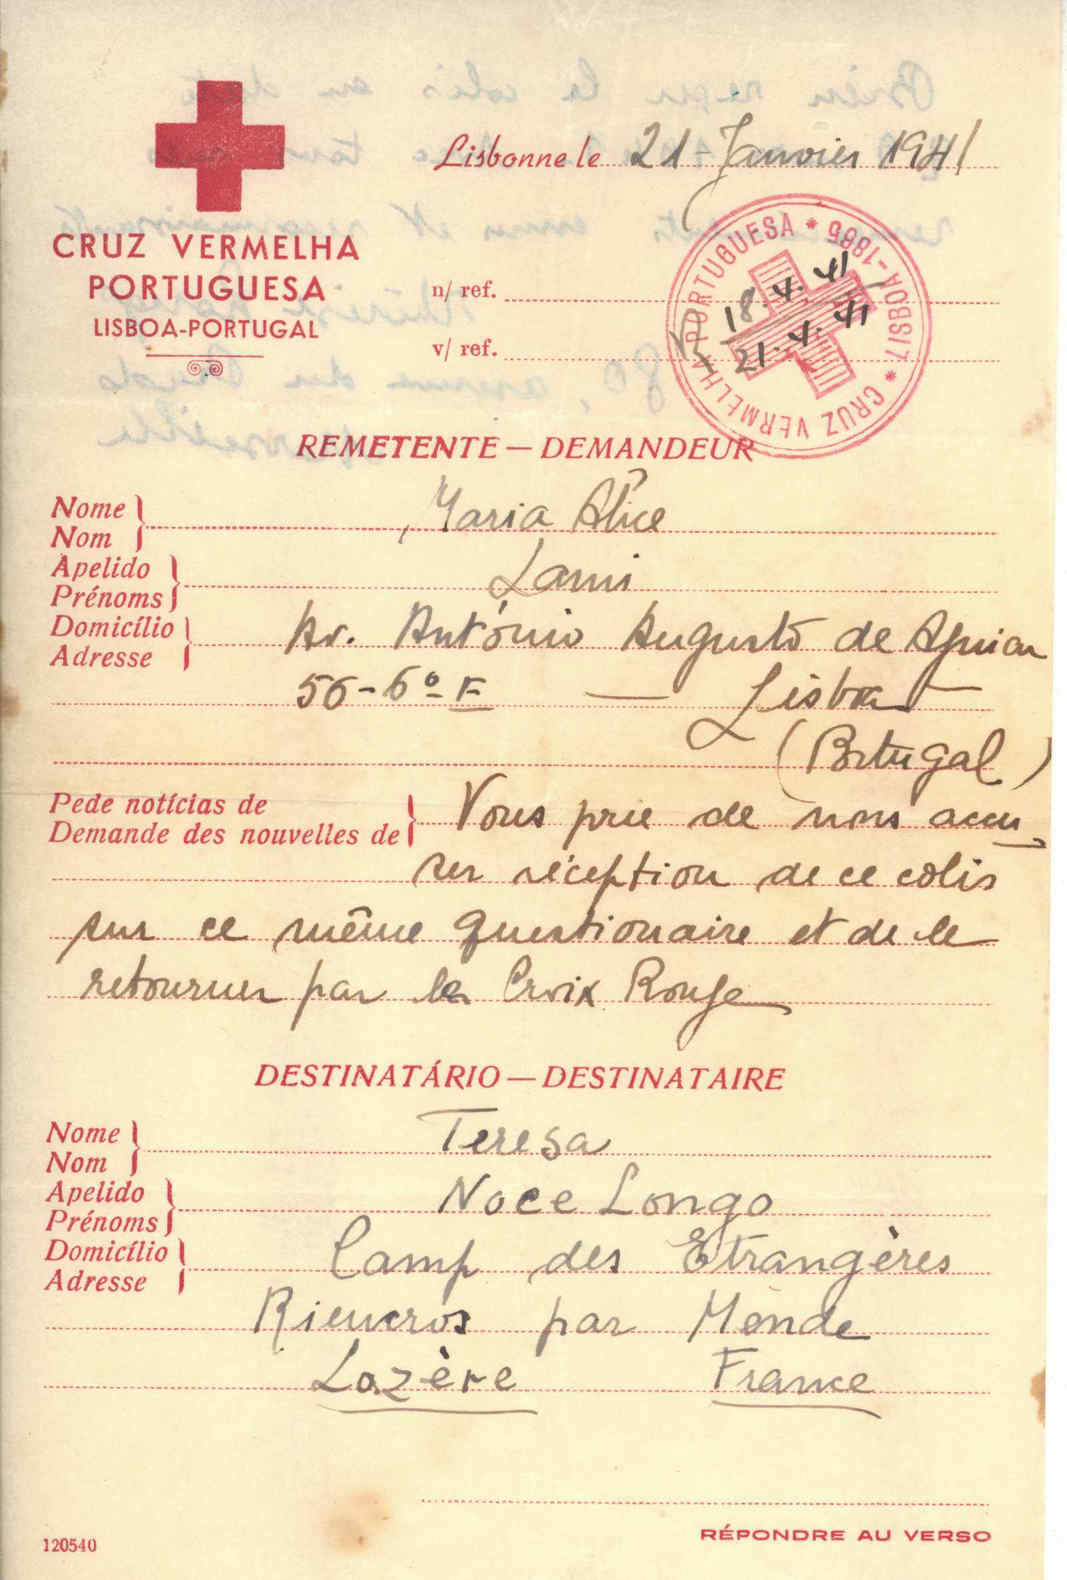 Lisbonne le 21 Janvier 1941
CRUZ VERMELHA
PORTUGUESA
LISBOA-PORTUGAL
n/ ref.
v/ ref.
CRUZ VERMELHA PORTUGUESA * 1865-LISBOA *
18.4.41
21.4.41
REMETENTE — DEMANDEUR
Nome
Nom
Maria Alice
Apelido
Prénoms
Lami
Domicílio
Adresse
Av. António Augusto de Aguiar
56-6º E — Lisboa —
(Portugal)
Pede notícias de
Demande des nouvelles de
Vous prie de nous accu-
ser réception de ce colis
sur ce même questionaire et de le
retourner par la Croix Rouge
DESTINATÁRIO — DESTINATAIRE
Nome
Nom
Teresa
Apelido
Prénoms
Noce Longo
Domicílio
Adresse
Camp des Etrangères
Rieucros par Mende
Lozère France
RÉPONDRE AU VERSO
120540